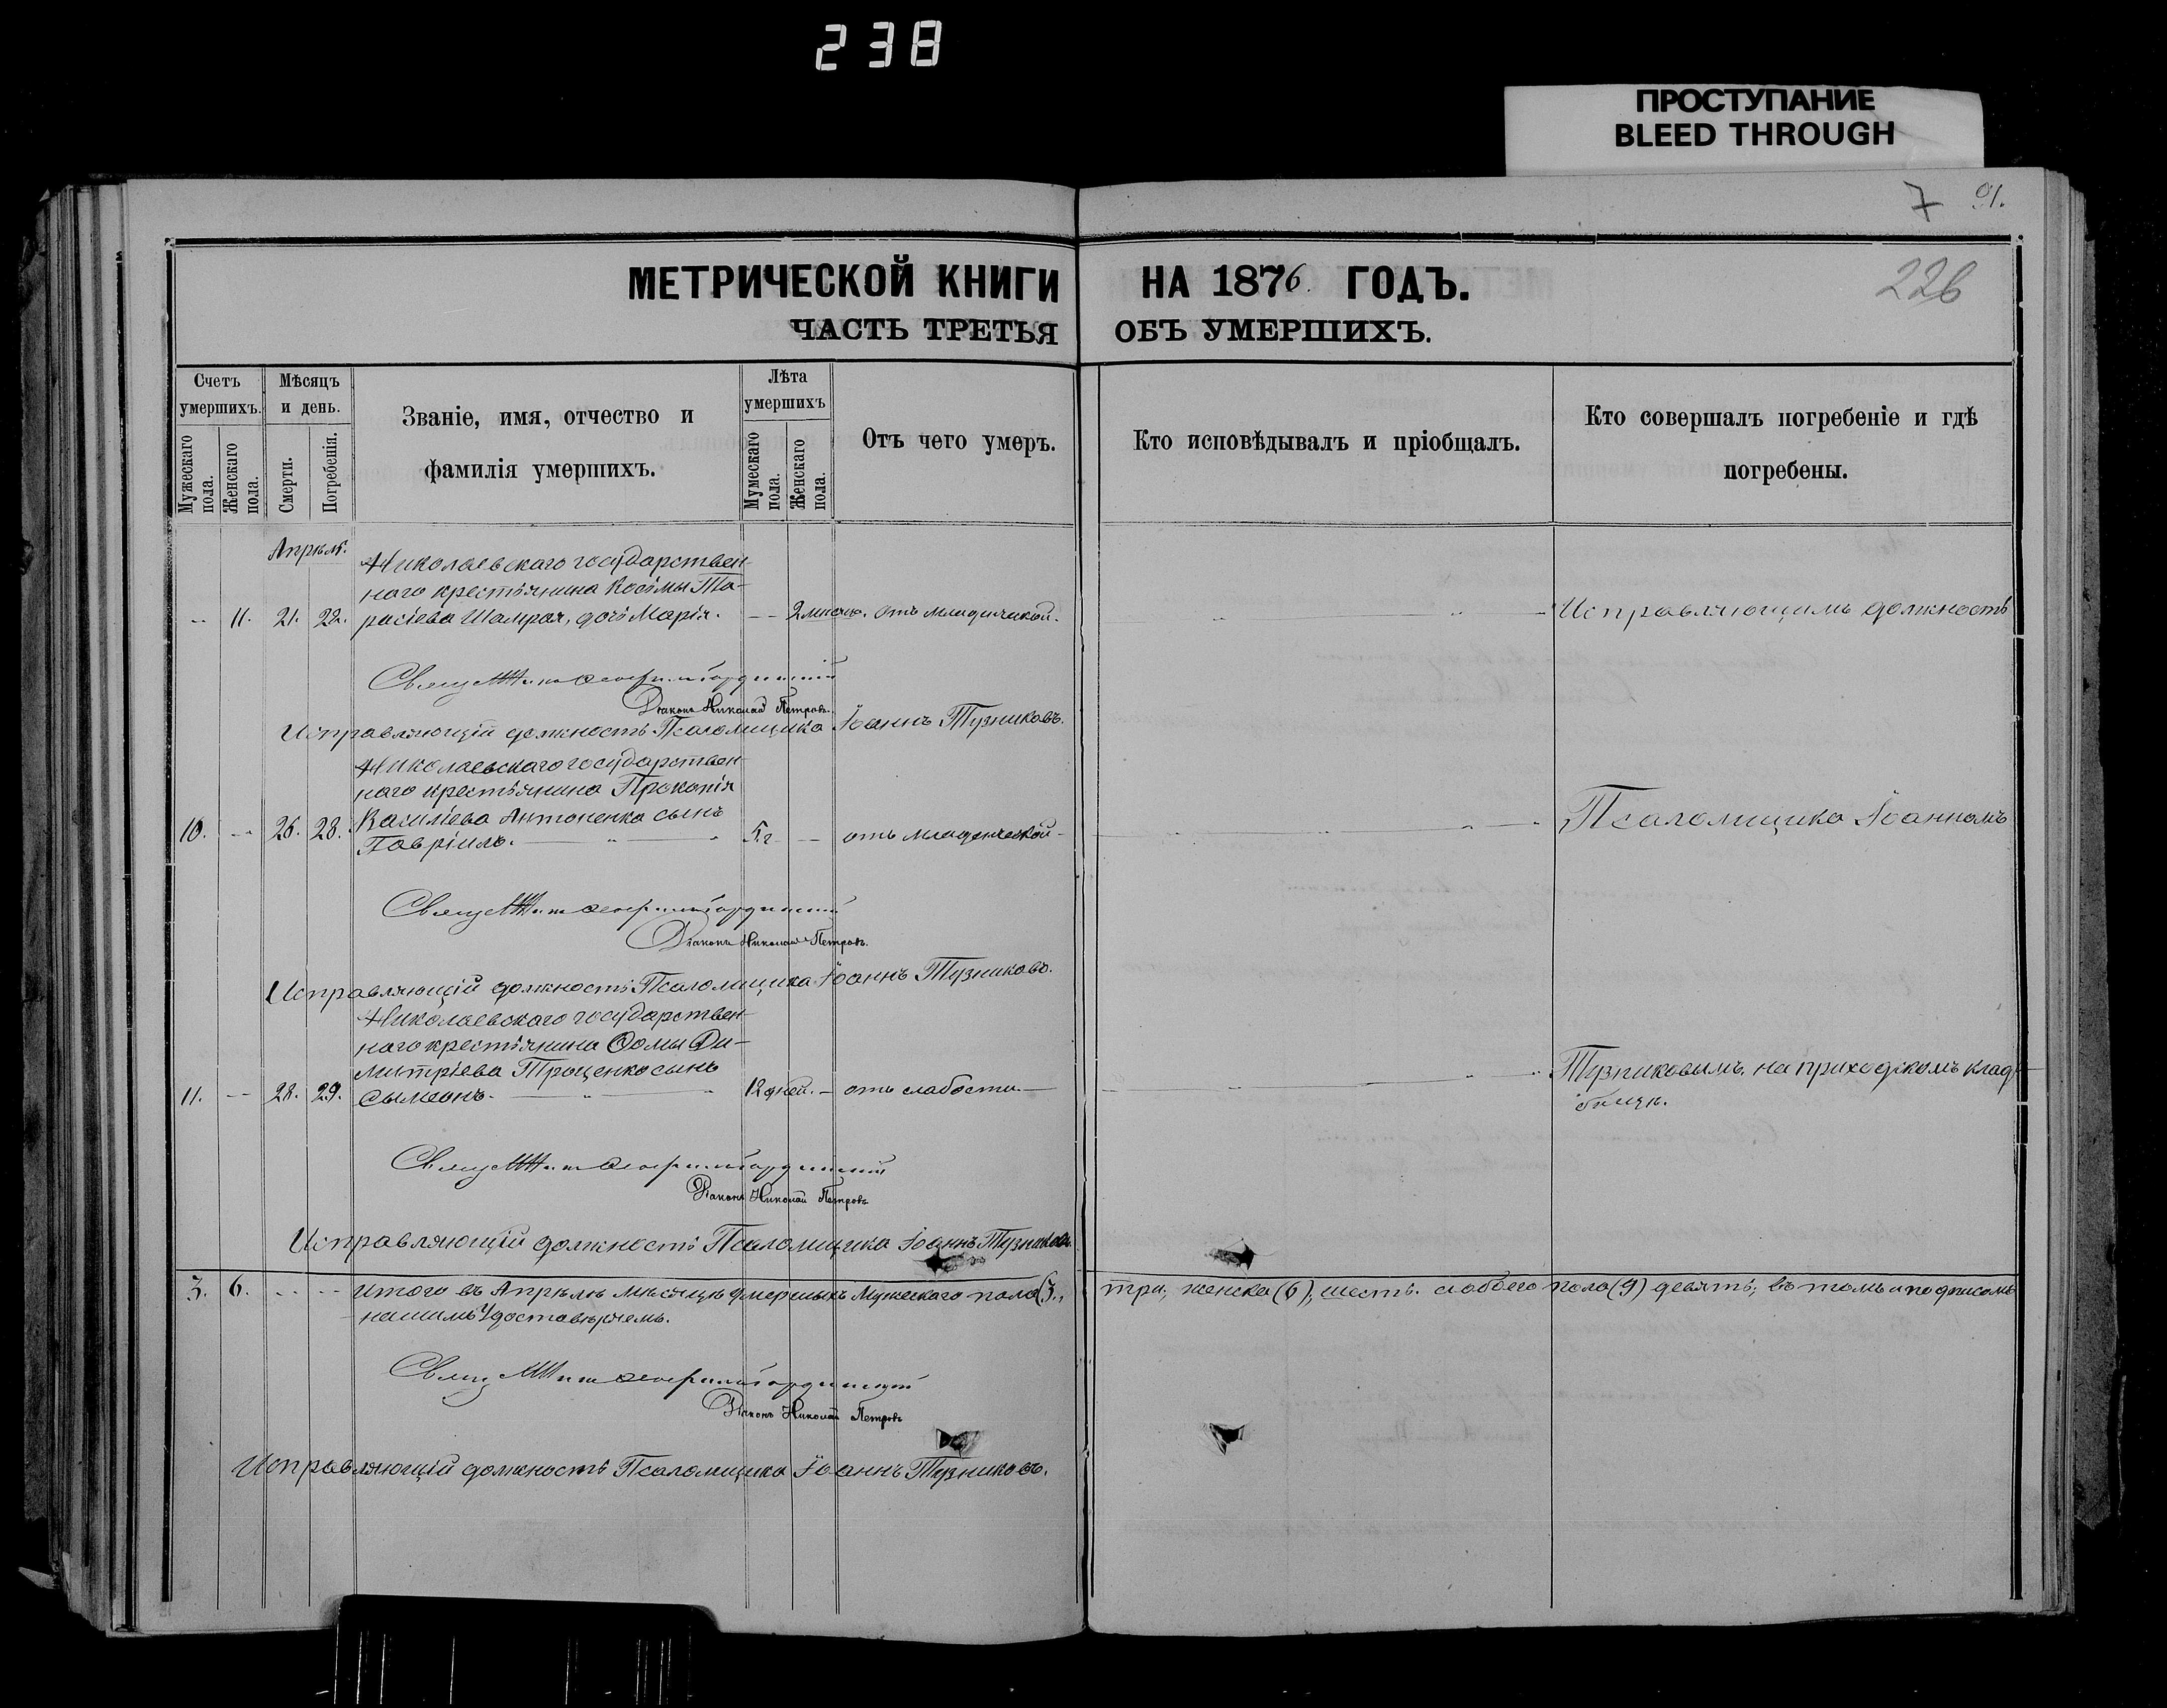 238
ПРОСТУПАНИЕ
BLEED THROUGH
7 91.
226
МЕТРИЧЕСКОЙ КНИГИ НА 1876. ГОДЪ.
ЧАСТЬ ТРЕТЬЯ ОБЪ УМЕРШИХЪ.
Счетъ умершихъ.
Мужескаго пола.
Женскаго пола.
Мѣсяцъ и день.
Смерти.
Погребенія.
Званіе, имя, отчество и
фамилія умершихъ.
Лѣта умершихъ
Мужескаго пола.
Женскаго пола.
Отъ чего умеръ.
Кто исповѣдывалъ и пріобщалъ.
Кто совершалъ погребеніе и гдѣ
погребены.
Апрѣль.
Николаевскаго государствен-
наго крестьянина Косьмы Та-
11. 21. 22. расіева Шамрая, дочь Марія. 2 отъ младенческой. Исправляющимъ должность
Діаконъ Николай Петровъ.
Исправляющій должность Псаломщика Іоаннъ Тузниковъ.
Николаевскаго государствен-
наго крестьянина Прокопія
Василіева Антоненко сынъ
10. 26. 28. Гавріилъ. 5 г. отъ младенческой Псаломщика Іоанномъ
Діаконъ Николай Петровъ.
Исправляющій должность Псаломщика Іоаннъ Тузниковъ.
Николаевскаго государствен-
наго крестьянина Ѳомы Ди-
митріева Троценко сынъ
11. 28. 29. Сымеонъ. 12 дней. отъ слабости. Тузниковымъ. на приходскомъ клад-
бищѣ.
Діаконъ Николай Петровъ
Исправляющій должность Псаломщика Іоаннъ Тузниковъ.
3. 6. Итого въ Апрѣлѣ мѣсяцѣ умершихъ Мужескаго пола (3., три, женска (6), шесть. обоего пола (9) девять; въ томъ и подписомъ
нашимъ Удостовѣряемъ.
Діаконъ Николай Петровъ
Исправляющій должность Псаломщика Іоаннъ Тузниковъ.